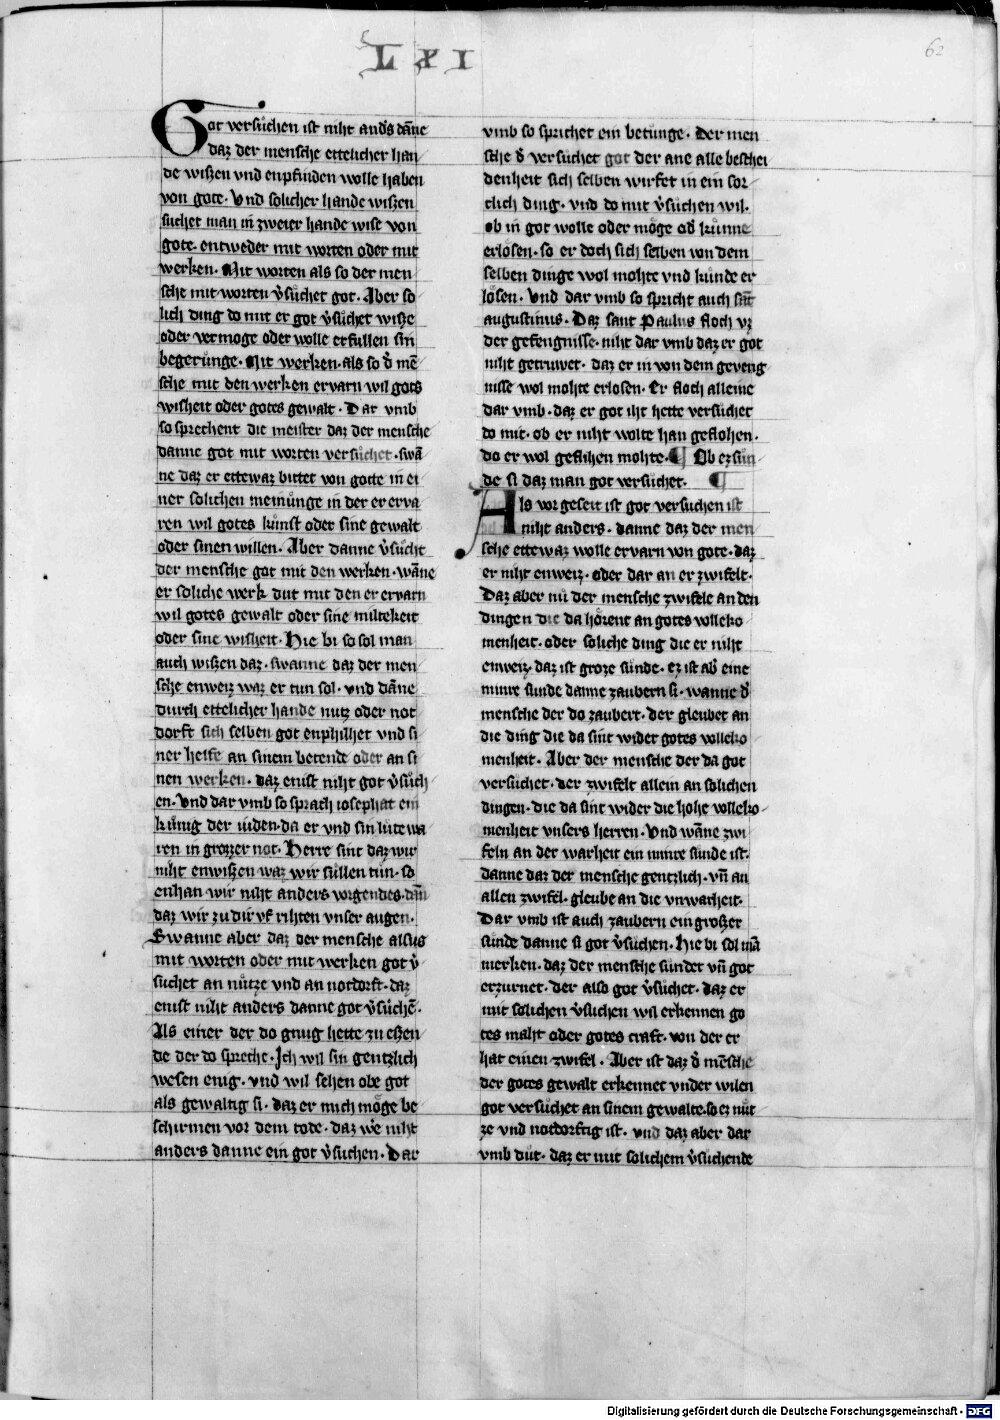 LXI
62
Got versůchen ist niht and's dāne
daz der mensche ettelicher han
de wiszen vnd enpfinden wolle haben
von gote. Vnd solicher hande wiszen
suchet man in zweier hande wise von
gote. entweder mit worten oder mit
werken. Mit worten als so der men
sche mit worten v'sůchet got. Aber so
lich ding do mit er got v'sůchet wisze
oder vermoge oder wolle erfullen sin
begerůnge. Mit werken. als so d' mē
sche mit den werken ervarn wil gots
wisheit oder gotes gewalt. Dar vmb
so sprechent die meister daz der mensche
danne got mit worten versůchet. swā
ne daz er ettewaz bittet von gotte in ei
ner solichen meinůnge in der er erva
ren wil gotes kůnst oder sine gewalt
oder sinen willen. Aber danne v'sůcht
der mensche got mit den werken. wāne
er soliche werk dut mit den er ervarn
wil gotes gewalt oder sine miltekeit
oder sine wisheit. Hie bi so sol man
auch wiszen daz. swanne daz der men
sche enweiz waz er tun sol. vnd dāne
durch ettelicher hande nutz oder not
dorft sich selben got enphilhet vnd si
ner helfe an sinem betende oder an si
nen werken. daz enist niht got v'sůch
en. Vnd dar vmb so sprach iosephat ein
kůnig der iůden. da er vnd sin lůte wa
ren in grozzer not. Herre sint daz wir
niht enwiszen waz wir sůllen tůn. so
enhan wir niht anders vorgendes. dān
daz wir zu dir vf rihten vnser augen.
Swanne aber daz der mensche alsus
mit worten oder mit werken got v'
suchet an nůtze vnd an notdorft. daz
enist niht anders danne got v'sůchē.
Als einer der do gnug hette zu eszen
de der do spreche. Ich wil sin gentzlich
wesen enig. vnd wil sehen obe got
als gewaltig si. daz er mich mőge be
schirmen vor dem tode. daz we' niht
anders danne ein got v'sůchen. Dar
vmb so sprichet ein betůnge. Der men
sche d' versuchet got der ane alle beschei
denheit sich selben wirfet in ein sor
clich ding. vnd do mit v'sůchen wil.
ob in got wolle oder mőge od' kůnne
erlősen. so er doch sich selben von dem
selben dinge wol mohte vnd kůnde er
lősen. Vnd dar vmb so spricht auch sāt
augustinus. Daz sant Paulus floch vz
der gefengnisse. niht dar vmb daz er got
niht getruwet. daz er in von dem geveng
nisse wol mohte erlosen. Er floch alleine
dar vmb. daz er got iht hette versůchet
do mit. ob er niht wolte han geflohen.
do er wol geflihen mohte. ¶ Ob ez sůn
de si daz man got versuchet. ¶
Als vor geseit ist got versuchen ist
niht anders. danne daz der men
sche ettewaz wolle ervarn von gote. daz
er niht enweiz. oder dar an er zwifelt.
Daz aber nů der mensche zwifele an den
dingen die da hőrent an gotes volleko
menheit. oder soliche ding die er niht
enweiz. daz ist groze sůnde. ez ist ab' eine
minre sunde danne zaubern si. wanne d'
mensche der do zaubert. der gleubet an
die ding die da sint wider gotes volleko
menheit. Aber der mensche der da got
versůchet. der zwifelt allein an solichen
dingen. die da sint wider die hohe volleko
menheit vnsers herren. Vnd wāne zwi
feln an der warheit ein minre sůnde ist.
danne daz der mensche gentzlich. vn̄ an
allen zwifel. gleube an die vnwarheit.
Dar vmb ist auch zaubern ein groszer
sůnde danne si got v'sůchen. Hie bi sol mā
merken. daz der mensche sůndet vn̄ got
erzurnet. der also got v'sůchet. daz er
mit solichen v'suchen wil erkennen go
tes maht oder gotes craft. von der er
hat einen zwifel. Aber ist daz d' mēsche
der gotes gewalt erkennet vnder wilen
got versůchet an sinem gewalte. so ez nůt
ze vnd notdorftig ist. vnd daz aber dar
vmb důt. daz er mit solichem v'suchende
Digitalisierung gefördert durch die Deutsche Forschungsgemeinschaft - DFG